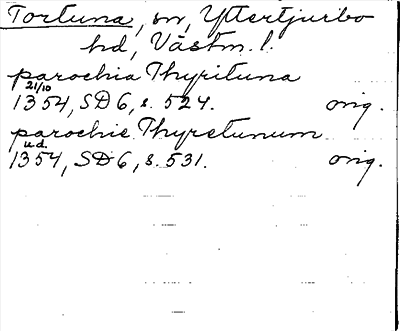 Tortuna, sn, Yttertjurbo
hd, Västm. l.
parochia Thyrituna
21/10
1354, SD 6, s. 524. orig.
parochie Thyretunum
u.d.
1354, SD 6, s. 531. orig.